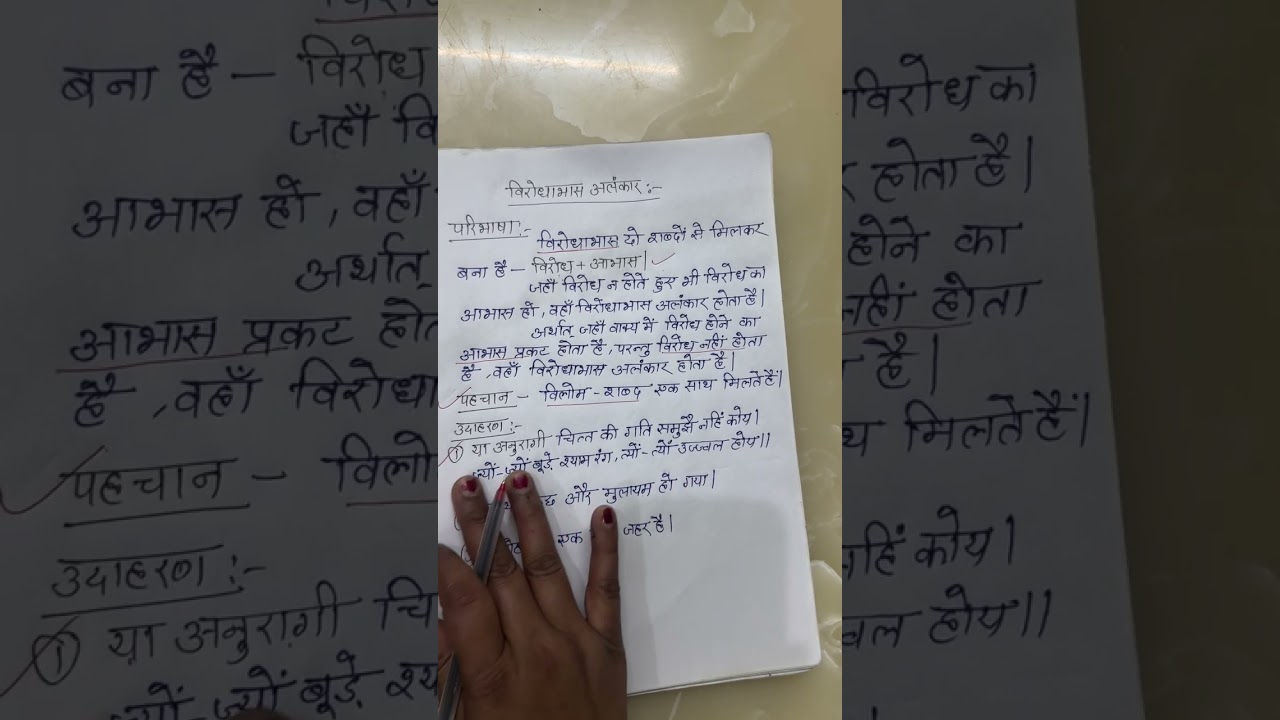 विरोधाभास अलंकार:-
परिभाषा:-
विरोधाभास दो शब्दों से मिलकर
बना है - विरोध + आभास|
जहाँ विरोध न होते हुए भी विरोध का
आभास हो, वहाँ विरोधाभास अलंकार होता है|
अर्थात् जहाँ वाक्य में विरोध होने का
आभास प्रकट होता है, परन्तु विरोध नहीं होता
है, वहाँ विरोधाभास अलंकार होता है|
पहचान - विलोम-शब्द एक साथ मिलते हैं|
उदाहरण:-
① या अनुरागी चित्त की गति समुझै नहिं कोय|
ज्यों-ज्यों बूड़े श्याम रंग, त्यों-त्यों उज्ज्वल होय||
और मुलायम हो गया|
एक जहर है|